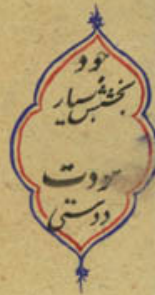 جود
بخشش بسیار
مودت
دوستی